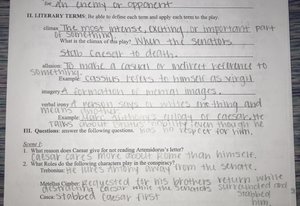 foe An enemy or opponent
II. LITERARY TERMS: Be able to define each term and apply each term to the play.
climax The most intense, exciting, or important part
of something
What is the climax of this play? When the senators
stab Caesar to death.
allusion: To make a casual or indirect reference to
something.
Example: Cassius refers to himself as Virgil
imagery A formation of mental images.
verbal irony A person says or writes one thing and
means another.
Example: Mark Anthony's eulogy of Caesar. He
talks about Brutus's nobility even though he
has no respect for him.
III. Questions: answer the following questions.
Scene 1:
1. What reason does Caesar give for not reading Artemidorus's letter?
Caesar cares more about Rome than himself.
2. What Roles do the following characters play in the conspiracy?
Trebonius: He lures Antony away from the senate.
Metellus Cimber: Requested for his brothers return while
distracting Caesar while the senators surrounded and stabbed
him.
Casca: Stabbed Caesar first